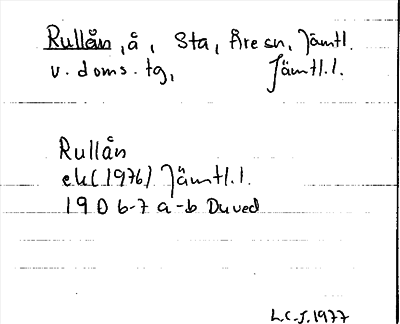 Rullån, å, Sta, Åre sn, Jämtl.
v. doms. tg, Jämtl.l.
Rullån
ek (1976) Jämtl.l.
19 D 6-7 a-b Duved
L.C-J. 1977